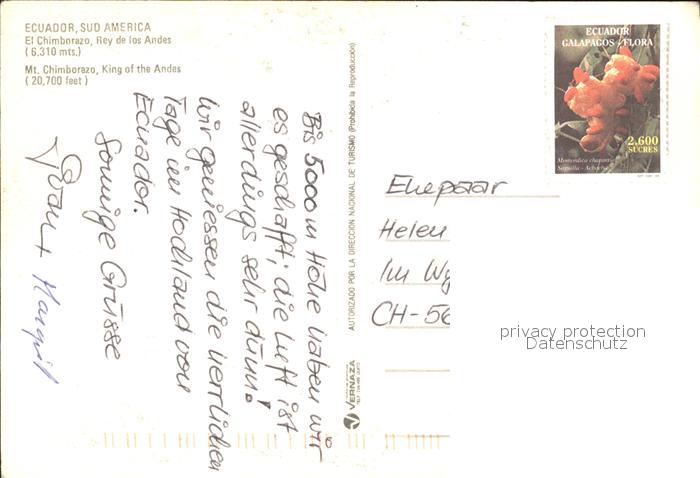 ECUADOR, SUD AMERICA
El Chimborazo, Rey de los Andes
(6,310 mts.)
Mt. Chimborazo, King of the Andes
(20,700 feet)
Bis 5000 m Höhe haben wir
es geschafft; die Luft ist
allerdings sehr dünn!
Wir geniessen die herrlichen
Tage im Hochland von
Ecuador.
Sonnige Grüsse
AUTORIZADO POR LA DIRECCION NACIONAL DE TURISMO (Prohibida la Reproducción)
VERNAZA
ECUADOR
GALAPAGOS - FLORA
2.600
SUCRES
Ehepaar
Helen
Im Wy
CH-56
privacy protection
Datenschutz